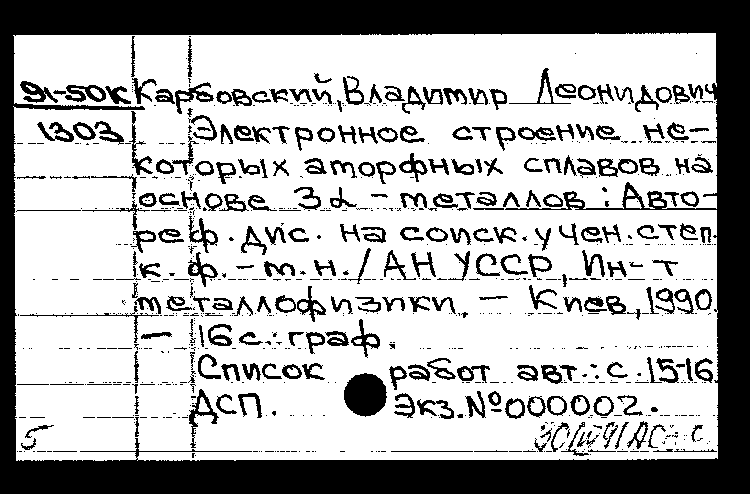 91-50к Карбовский, Владимир Леонидович
1303 Электронное строение не-
которых аморфных сплавов на
основе 3d - металлов : Авто-
реф. дис. на соиск. учен. степ.
к. ф. - м. н. / АН УССР, Ин-т
металлофизики. — Киев, 1990.
— 16 с. : граф.
Список работ авт.: с. 15-16.
ДСП. Экз. № 000002.
5